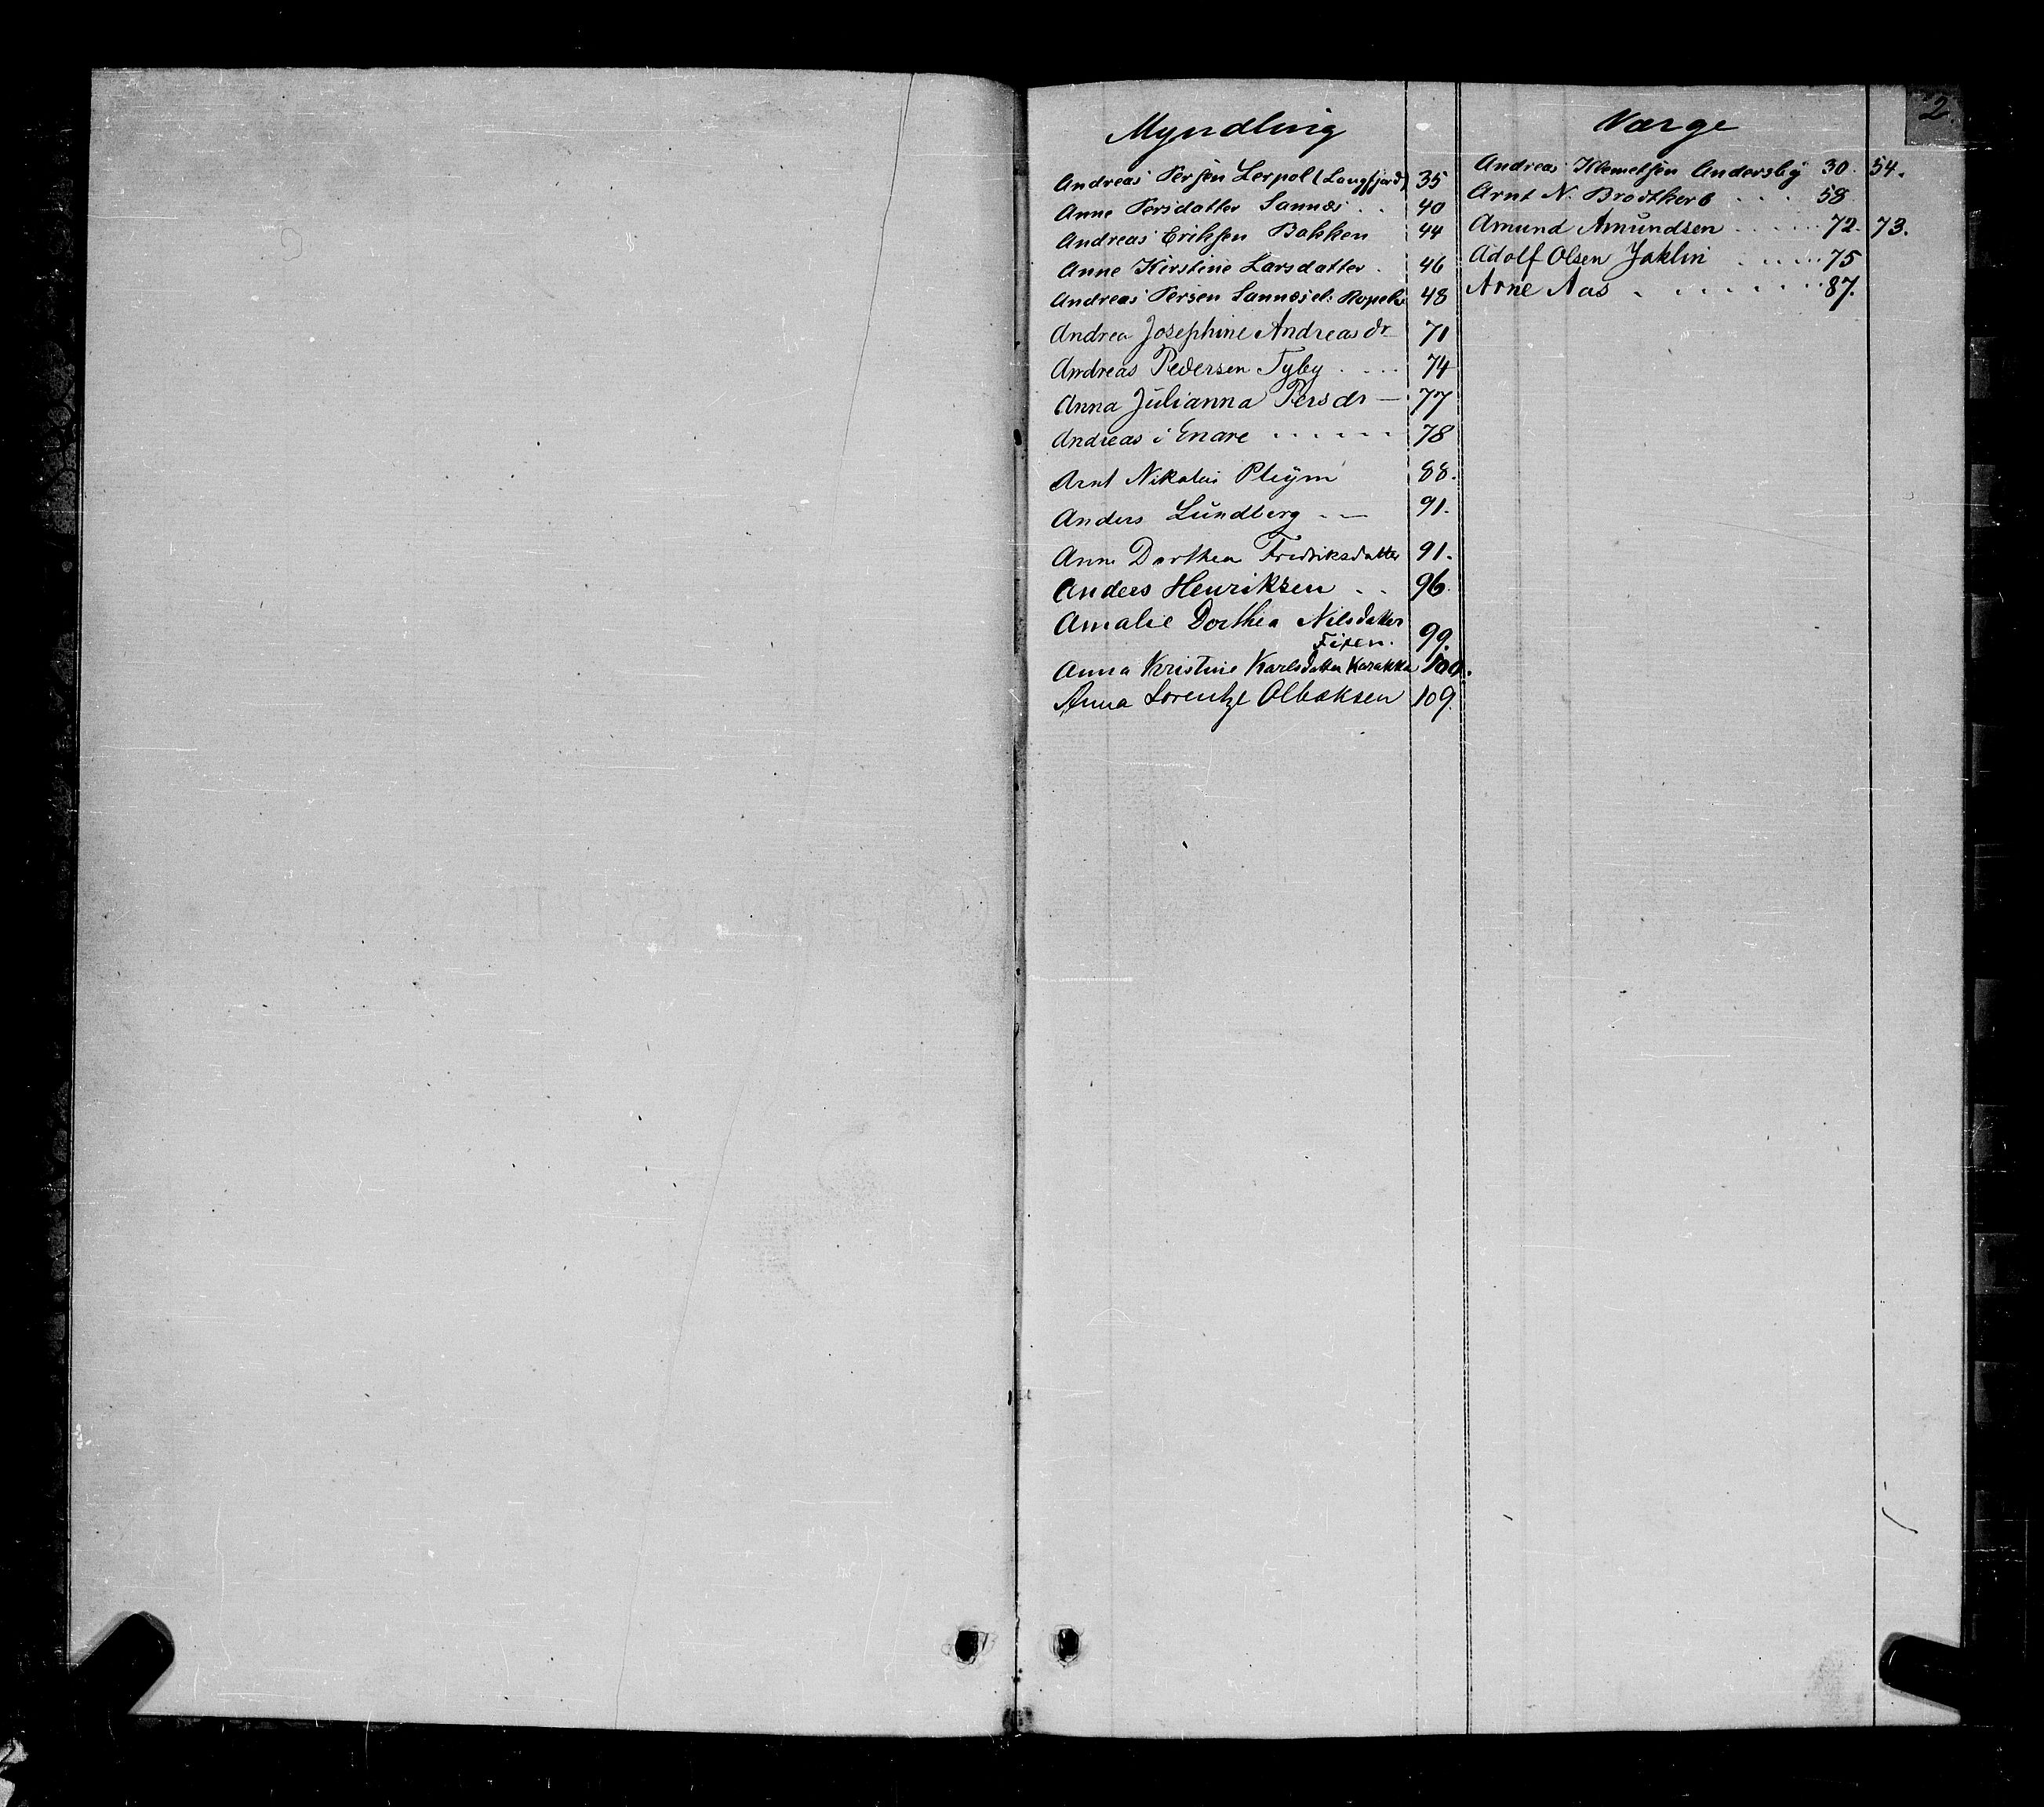 2.
Myndling
Andreas Persen Lerpol (Langfjord) 35
Anne Persdatter Sannæs . . 40
Andreas Eriksen Bakken 44
Anne Kirstine Larsdatter . 46
Andreas Persen Sannæs el. 48
Andrea Josephine Andreasdr 71
Andreas Pedersen Tyby . . . . 74
Anna Julianna Persdr — 77
Andreas i Enare . . . . . 78
Arnt Nikolai Pleÿm 88.
Anders Lundberg . — 91.
Anne Dorthea Fredriksdatter 91.
Anders Henriksen . . 96.
Amalie Dorthea Nilsdatter
99.
Anna Kristine Karlsdatter Karakka 100.
Anna Lorentze Olbæksen 109.
Værge
Andreas Klemetsen Andersby 30. 54.
Arnt N. Brodtkorb . . . 58
Amund Amundsen . . . . . 72. 73.
Adolf Olsen Jaklin . . . . . 75
Arne Aas . . . . . . . 87.